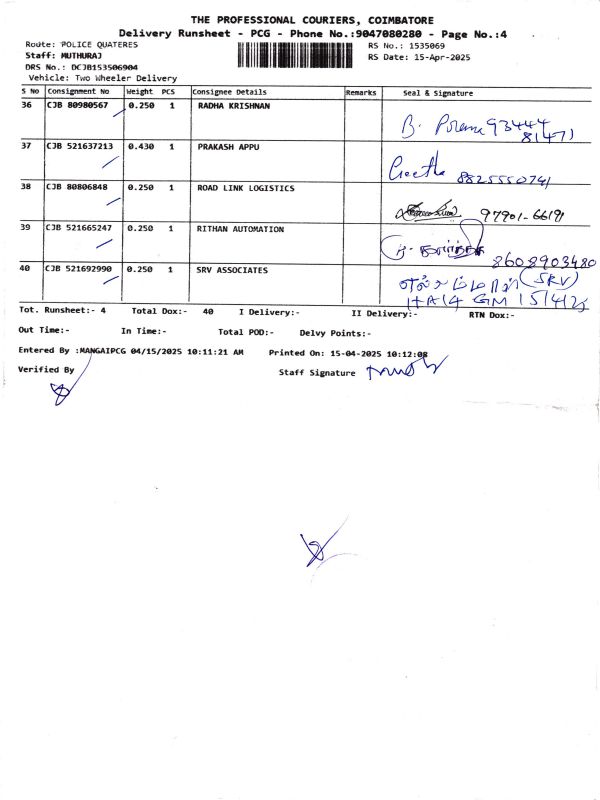 THE PROFESSIONAL COURIERS, COIMBATORE
Delivery Runsheet - PCG - Phone No.:9047080280 - Page No.:4
Route: POLICE QUATERES
RS No.: 1535069
Staff: MUTHURAJ
RS Date: 15-Apr-2025
DRS No.: DCJB153506904
Vehicle: Two Wheeler Delivery
S No Consignment No Weight PCS Consignee Details Remarks Seal & Signature
36 CJB 80980567 0.250 1 RADHA KRISHNAN
93444
81471
37 CJB 521637213 0.430 1 PRAKASH APPU
Geetha 8825550741
38 CJB 80806848 0.250 1 ROAD LINK LOGISTICS
97901-66191
39 CJB 521665247 0.250 1 RITHAN AUTOMATION
8608903480
40 CJB 521692990 0.250 1 SRV ASSOCIATES
(SRV)
Tot. Runsheet:- 4 Total Dox:- 40 I Delivery:- II Delivery:- RTN Dox:-
Out Time:- In Time:- Total POD:- Delvy Points:-
Entered By :MANGAIPCG 04/15/2025 10:11:21 AM Printed On: 15-04-2025 10:12:08
Verified By
Staff Signature